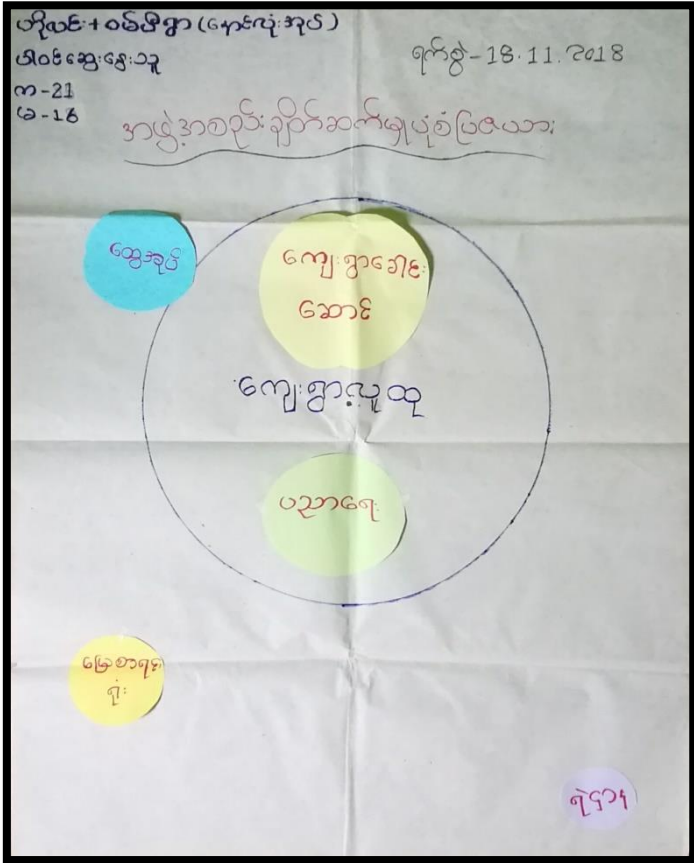 ဟိုလင်း + ဝမ်ဖီရွာ (နောင်လုံးအုပ်)
ပါဝင်ဆွေးနွေးသူ
ရက်စွဲ - 18.11.2018
က - 21
မ - 18
အဖွဲ့အစည်းချိတ်ဆက်မှုပုံစံပြဇယား
ထွေအုပ်
ကျေးရွာခေါင်း
ဆောင်
ကျေးရွာလူထု
ပညာရေး
မြေစာရင်း
ရုံး
ရဲဌာန